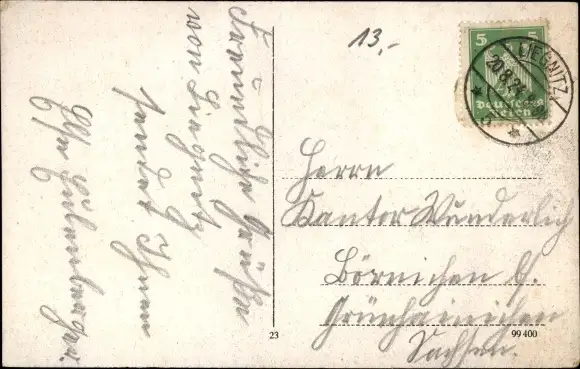 Freundliche Grüße
von Liegnitz
sendet Ihnen
13,-
5 5
Deutsches
Reich
LIEGNITZ
Herrn
Kantor Wunderlich
Börnichen b.
Grünhainichen
Sachsen.
23
99400